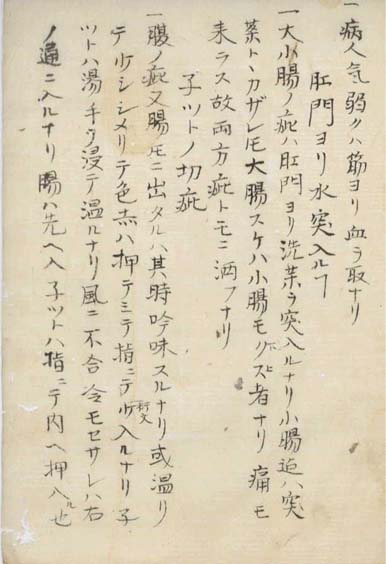 一病人気弱クハ筋ヨリ血ヲ取ナリ
肛門ヨリ水突入ルヿ
一大小腸ノ疵ハ肛門ヨリ洗薬ヲ突入ルナリ小腸迠ハ突
薬トヽカザレ𪜈大腸スケハ小腸モクス者ナリ痛モ
来ラス故両方疵トモニ洒フナリ
子ツトノ切疵
一腹ノ疵又腸𪜈ニ出タルハ其時吟味スルナリ或温リ
テ少シシメリテ色赤ハ押テミテ指ニテ少入ルナリ子
ツトハ湯ニ手ヲ浸テ温ルナリ風ニ不合冷モセサレハ右
ノ通ニ入ルナリ腸ハ先ヘ入子ツトハ指ニテ内ヘ押入ル也